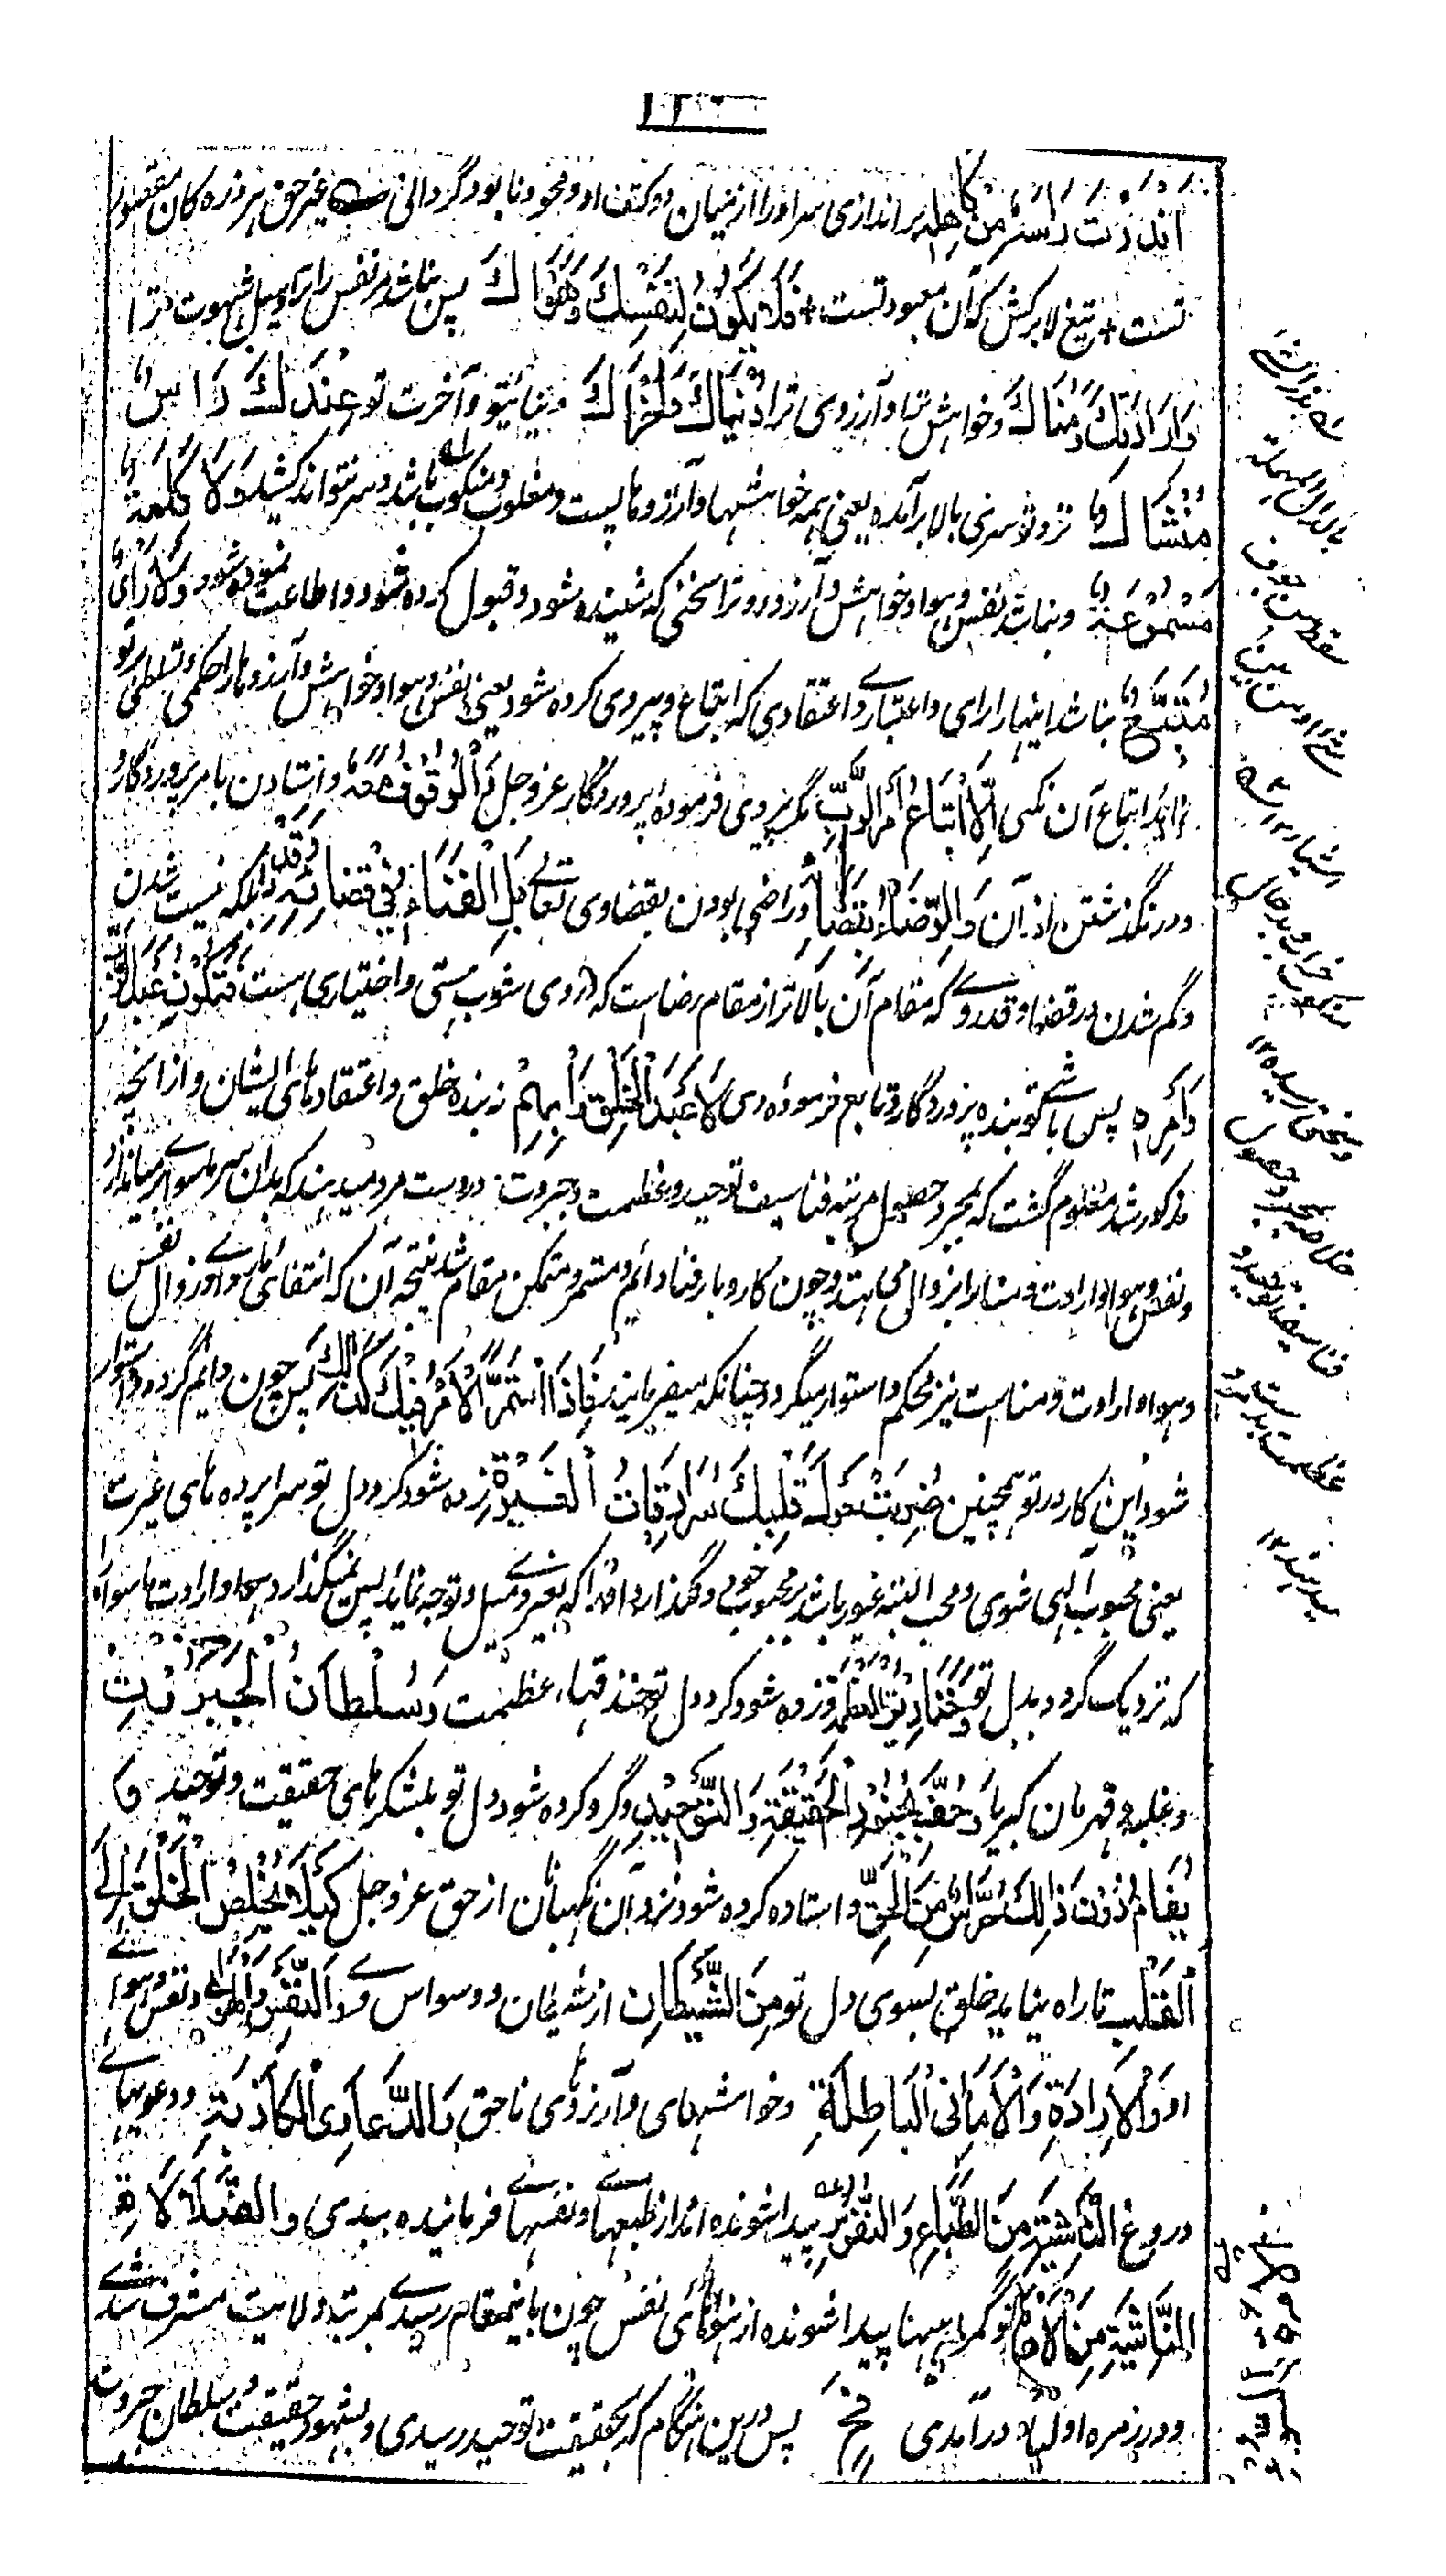 اندرت راسه من كاهله بر اندازی سر او را از میان دو کتف او و محو و نابود گردانی غیر حق هر ذره کان مقصود
تست + تیغ لا برکش که آن معبود تست + فلا يكون لنفسك وهواك پس نباشد مر نفس را ترا و میل شهوت ترا
وارادتك ومناك و خواهش ترا و آرزوی ترا دنياك واخراك دنیای تو و آخرت تو عندك راس
منشاك نزد تو سری بالا برآمده یعنی همه خواهشها و آرزوها پست و مغلوب و منکوب باشد و سر نتواند کشید ولا كلمة
مسموعة و نباشد نفس و هوا و خواهش و آرزو را سخنی که شنیده شود و قبول کرده شود و اطاعت نموده شود ولا راي
متبع نباشد اینها را رای و اعتباری و اعتقادی که اتباع و پیروی کرده شود یعنی نفس و هوا و خواهش و آرزوها را حکمی و تسلطی بر تو
نماند اتباع آن نکنی الا اتباع امر الرب مگر پیروی فرموده پروردگار عز و جل والوقوف معه و ایستادن با امر پروردگار و
در نگذشتن از آن والرضاء بقضائه و راضی بودن بقضای وی تعالی بل الفناء في قضائه وقدره بلکه نیست شدن
و گم شدن در قضا و قدر وی که مقام آن بالاتر از مقام رضا است که در وی شوب هستی و اختیاری هست فتكون عبد الرب
وامره پس باشی تو بنده پروردگار و تابع فرموده وی لا عبد الخلق ورايهم نه بنده خلق و اعتقادهای ایشان و از آنچه
مذکور شد معلوم گشت که بمجرد حصول مرتبه فنا سیف توحید و عظمت و جبروت در دست مرد میدهند که بدان سر ماسوا بر میاندازد
و نفس و هوا و ارادت و منا را بزوال می آرد و چون کاروبار فنا دائم و مستمر و متمکن مقام شد نتیجه آن که انتفای ماسوا و زوال نفس
و هوا و ارادت و مناست نیز محکم و استوار میگردد چنانکه میفرمایند فاذا استمر الامر فيك كذلك پس چون دائم گردد و استوار
شود این کار در تو همچنین ضربت حول قلبك سرادقات الغيرة زده شود گرد دل تو سراپرده های غیرت
یعنی محبوب الهی شوی و محب البته غیور باشد بر محبوب خود و نگذارد او را که بغیر وی میل و توجه نماید پس نمیگذارد هوا و ارادت ماسوا را
که نزدیک گردد بدل تو وخنادق العظمة و زده شود گرد دل تو خندقهای عظمت وسلطان الجبروت
و غلبه و قهرمان کبریا وحف بجنود الحقيقة والتوحيد و گرد کرده شود دل تو بلشکرهای حقیقت و توحید و
يقام دون ذلك حراس من الحق و استاده کرده شود نزد آن نگهبانان از حق عز و جل كيلا يخلص الخلق الى
القلب تا راه نیابد خلق بسوی دل تو من الشيطان از شیطان و وسواس وی والنفس والهوى و نفس و هوای
او والارادة والاماني الباطلة و خواهشهای و آرزوهای ناحق والدعاوى الكاذبة و دعویهای
دروغ الناشية من الطباع والنفوس پیدا شونده اند از طبعها و نفسهای فرماینده ببدی والضلالات
الناشية من الاهواء و گمراهیها پیدا شونده از هواهای نفس چون باین مقام رسیدی بمرتبه ولایت مشرف شدی
و در زمره اولیاء درآمدی فح پس درین هنگام که بحقیقت توحید رسیدی و بشهود حقیقت و سلطان جبروت